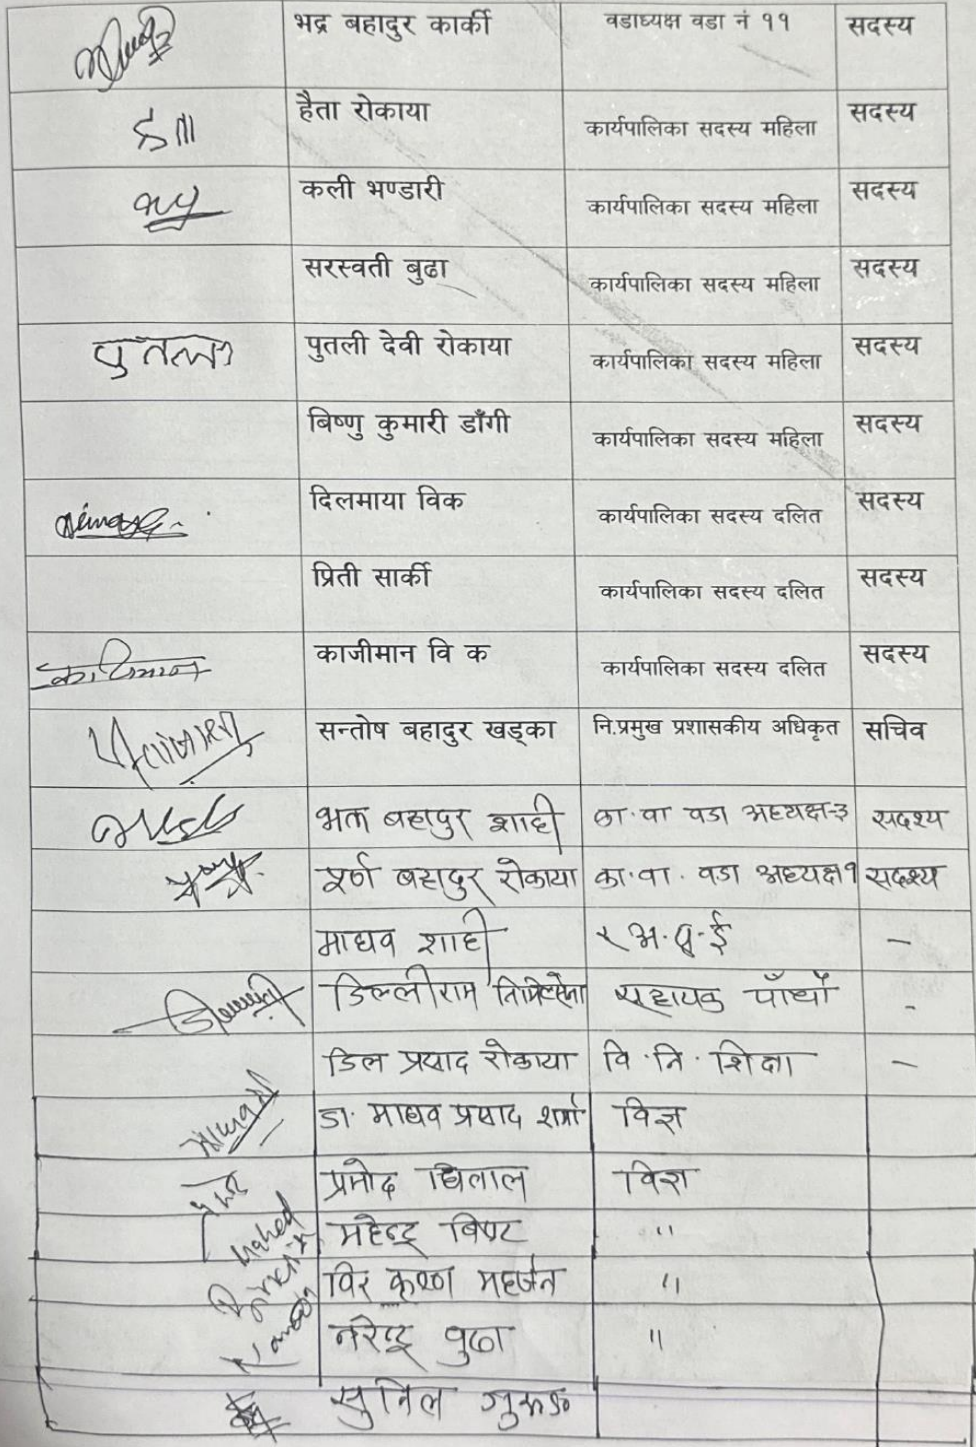 भद्र बहादुर कार्की वडाध्यक्ष वडा नं ११ सदस्य
हैता रोकाया कार्यपालिका सदस्य महिला सदस्य
कली भण्डारी कार्यपालिका सदस्य महिला सदस्य
सरस्वती बुढा कार्यपालिका सदस्य महिला सदस्य
पुतली देवी रोकाया कार्यपालिका सदस्य महिला सदस्य
बिष्णु कुमारी डाँगी कार्यपालिका सदस्य महिला सदस्य
दिलमाया विक कार्यपालिका सदस्य दलित सदस्य
प्रिती सार्की कार्यपालिका सदस्य दलित सदस्य
काजीमान वि क कार्यपालिका सदस्य दलित सदस्य
सन्तोष बहादुर खड्का नि.प्रमुख प्रशासकीय अधिकृत सचिव
भक्त बहादुर शाही का.वा वडा अध्यक्ष-३ सदश्य
पूर्ण बहादुर रोकाया का.वा. वडा अध्यक्ष १ सदश्य
माधव शाही —
डिल्लीराम सहायक पाँचौँ -
डिल प्रसाद रोकाया वि.नि.शिक्षा —
डा. माधव प्रसाद शर्मा विज्ञ
प्रमोद घिलाल विज्ञ
महेन्द्र बिष्ट "
विर कृष्ण महर्जन "
नरेन्द्र बुढा "
सुनिल